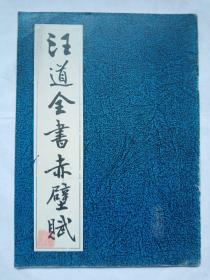 汪道全書赤壁賦